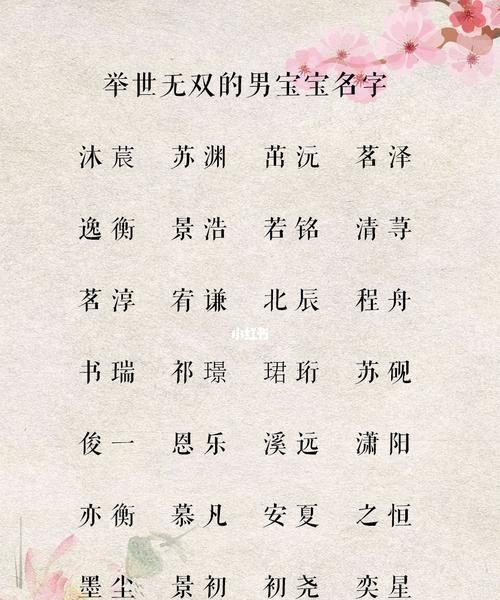 举世无双的男宝宝名字
沐莀 苏渊 茁沅 茗泽
逸衡 景浩 若铭 清荨
茗淳 宥谦 北辰 程舟
小红书
书瑞 祁璟 珺珩 苏砚
俊一 恩乐 溪远 潇阳
亦衡 慕凡 安夏 之恒
墨尘 景初 初尧 奕星